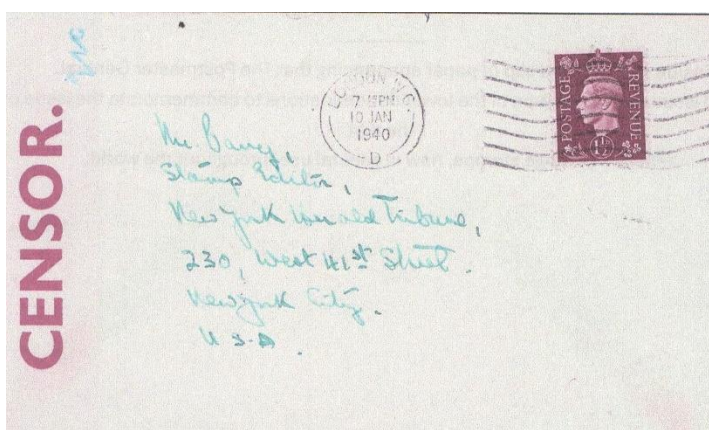 CENSOR.
LONDON. W.C.
10 JAN
1940
D
POSTAGE REVENUE
1½D
Mr.
Stamp Editor,
New York Herald Tribune,
230, West 41st Street.
New York City.
U.S.A.